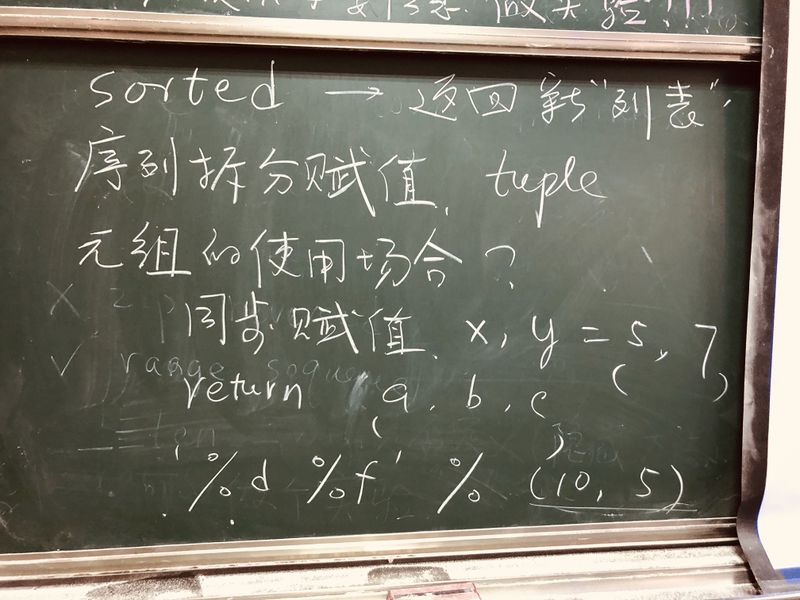 做实验!!!
sorted → 返回新"列表"
序列拆分赋值. tuple
元组的使用场合?
同步赋值. x, y = 5, 7
( )
return a, b, c
( )
'%d %f' % (10, 5)
x
✓ range sequence
len